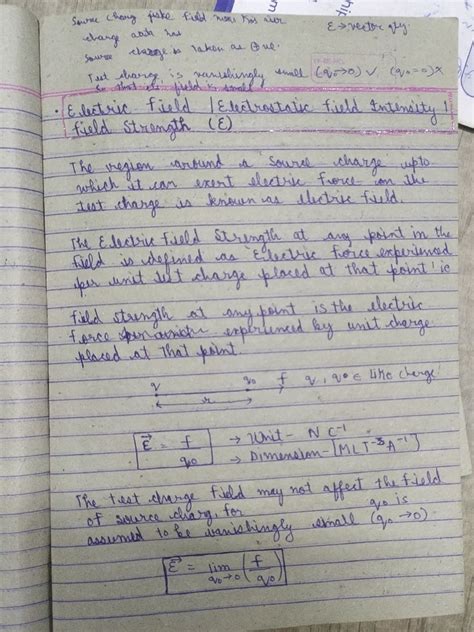 Source charg field has
E → vector qty
charge
Source charge is taken as ⊕ve.
Test charge is vanishingly small (q₀→0) ✓ (q₀=0)✗
So that field is small
• Electric Field / Electrostatic Field Intensity /
Field Strength (E)
The region around a source charge upto
which it can exert electric force on the
test charge is known as electric field.
The Electric Field Strength at any point in the
field is defined as Electric Force experienced
per unit test charge placed at that point / ie
field strength at any point is the electric
force experienced by unit charge
placed at that point.
q q₀ f q, q₀ ∈ like charge
r
E⃗ = f/q₀ → Unit - N C⁻¹
→ Dimension - [MLT⁻³A⁻¹]
The test charge field may not affect the field
of source charg, for q₀ is
assumed to be vanishingly small (q₀→0)
E⃗ = lim q₀→0 (f/q₀)